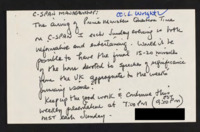 C-SPAN MANAGEMENT: Bill Wright
The airing of Prime Minister's Question Time
on C-SPAN I each Sunday evening is both
informative and entertaining. Would it be
possible to have the final 15-20 minutes
of the hour devoted to speeches of significance
from the UK appropriate to the week's
business.
Keep up the good work & continue this
weekly presentation at 7:00 PM
next each Sunday.